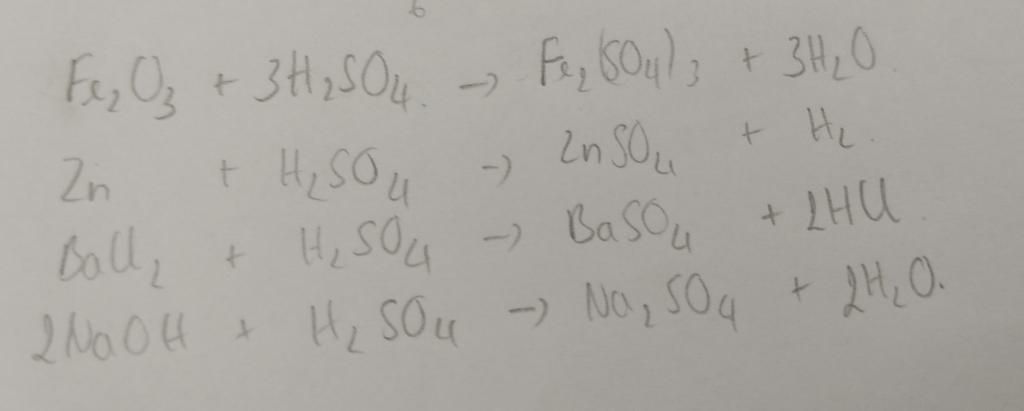 6
Fe₂O₃ + 3H₂SO₄. → Fe₂(SO₄)₃ + 3H₂O.
Zn + H₂SO₄ → ZnSO₄ + H₂.
BaCl₂ + H₂SO₄ → BaSO₄ + 2HCl.
2NaOH + H₂SO₄ → Na₂SO₄ + 2H₂O.